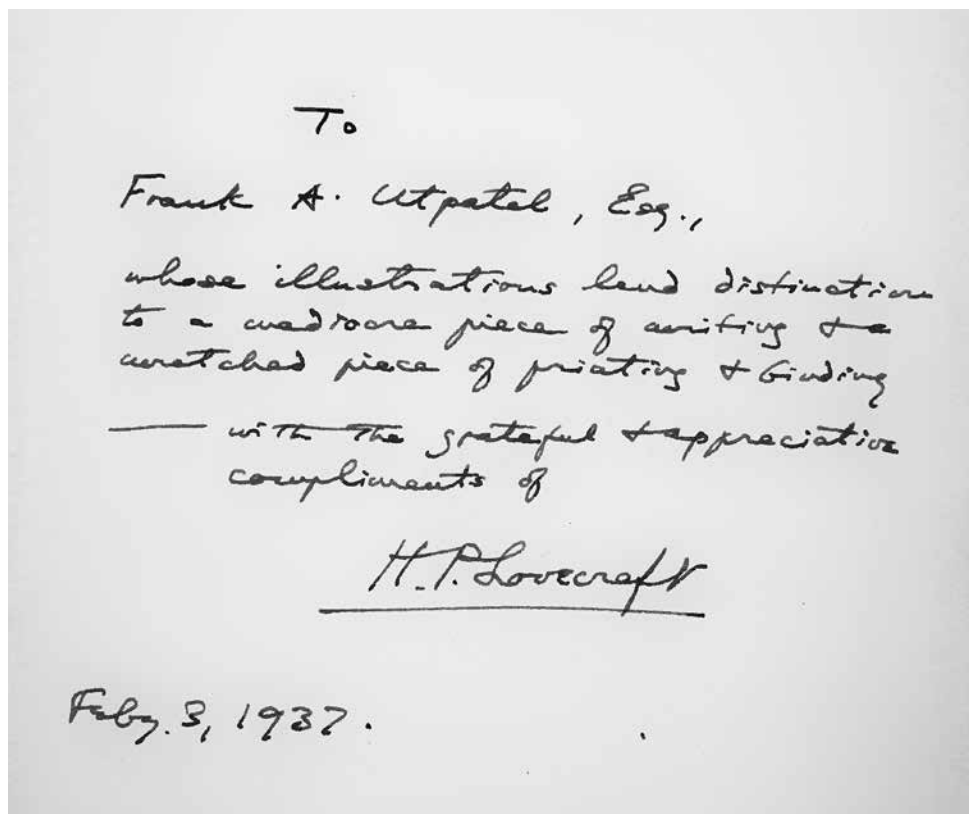 To
Frank A. Utpatel, Esq.,
whose illustrations lend distinction
to a mediocre piece of writing & a
wretched piece of printing & binding
—— with the grateful & appreciative
compliments of
H. P. Lovecraft
Feby. 3, 1937.